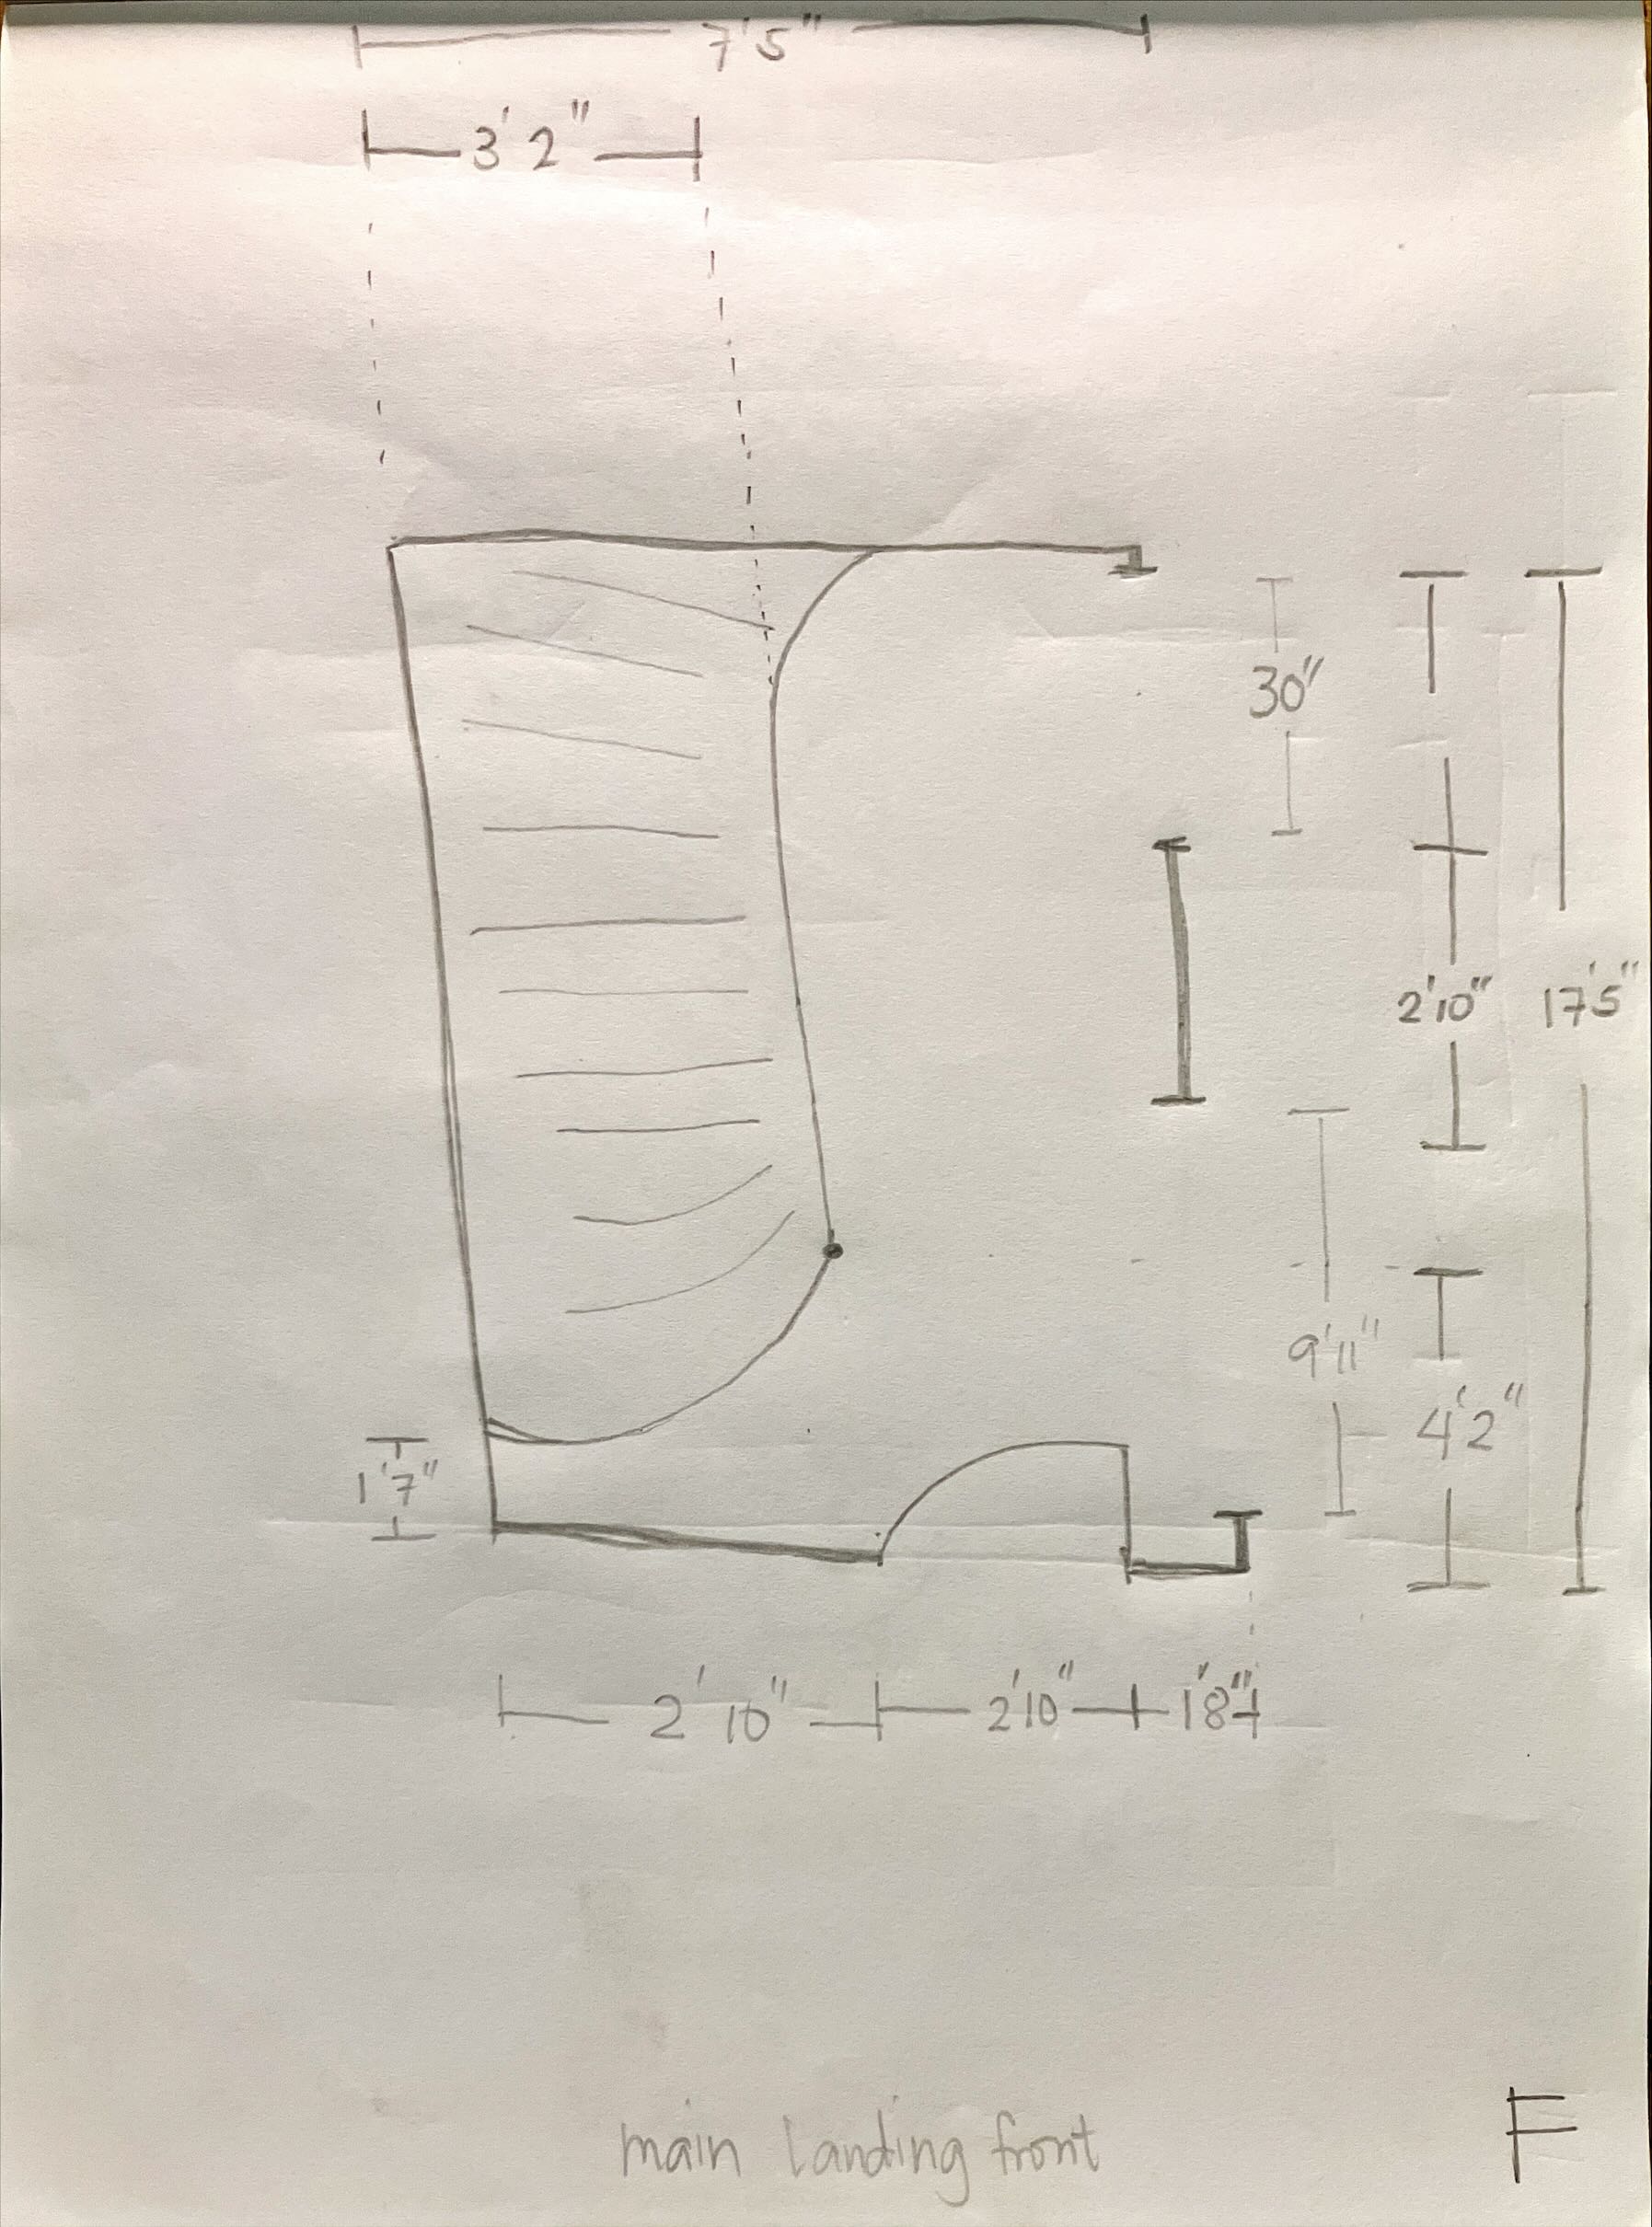 7'5"
3'2"
30"
2'10" 17'5"
9'11"
4'2"
1'7"
2'10" 2'10" 1'8"
main landing front
F